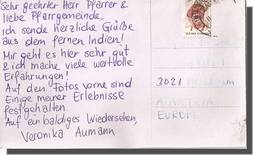 Sehr geehrter Herr Pfarrer &
liebe Pfarrgemeinde,
ich sende herzliche Grüße
aus dem fernen Indien!
Mir geht es hier sehr gut
& ich mache viele wertvolle
Erfahrungen!
Auf den Fotos vorne sind
Einige meiner Erlebnisse
festgehalten.
Auf ein baldiges Wiedersehen,
Veronika Aumann
3021
AUSTRIA
EUROPE